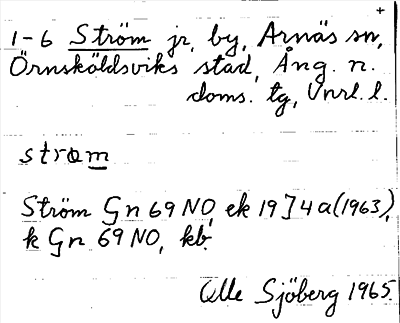 +
1-6 Ström jr, by, Arnäs sn,
Örnsköldsviks stad, Ång. n.
doms. tg, Vnrl. l.
strøm
Ström Gn 69 NO, ek 19 J 4 a (1963),
k Gn 69 NO, kb.
Olle Sjöberg 1965.